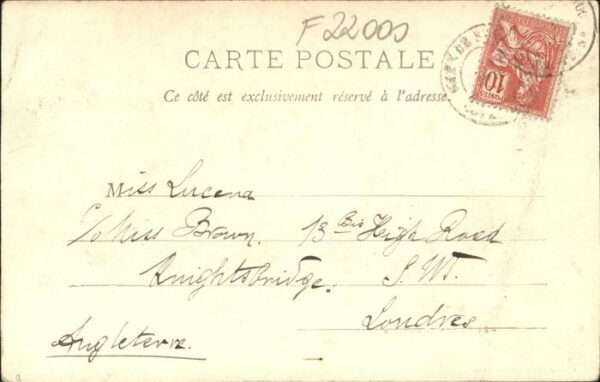 F 22000
CARTE POSTALE
Ce côté est exclusivement réservé à l'adresse.
10
Miss Lucena
c/o Miss Brown. 13 Bis High Road
Knightsbridge. S.W.
Londres
Angleterre.